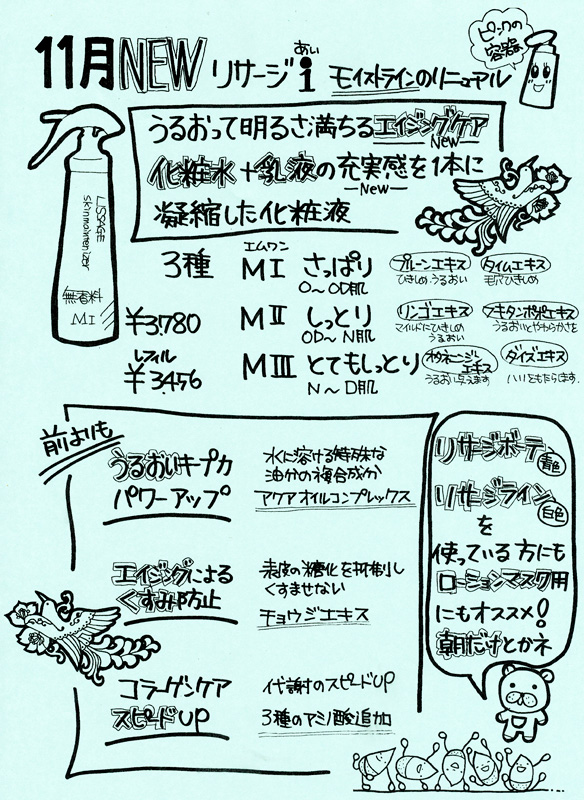 ピンクの
容器
11月NEW リサージi モイストラインのリニューアル
あい
うるおって明るさ満ちるエイジングケア
New
化粧水+乳液の充実感を1本に
New
凝縮した化粧液
LISSAGE
skinmaintenizer
無香料
MI
3種
¥3,780
レフィル
¥3,456
エムワン
MI さっぱり
O〜OD肌
プルーンエキス
ひきしめ、うるおい
タイムエキス
毛穴ひきしめ
MII しっとり
OD〜N肌
リンゴエキス
マイルドにひきしめ
うるおい
フキタンポポエキス
うるおいとやわらかさを
MIII とてもしっとり
N〜D肌
オウゴニンジン
エキス
うるおい与えます
ダイズエキス
ハリをもたらします。
前よりも
うるおいキープ力
パワーアップ
水に溶ける特殊な
油分の複合成分
アクアオイルコンプレックス
エイジングによる
くすみ防止
表皮の糖化を抑制し
くすませない
チョウジエキス
コラーゲンケア
スピードUP
代謝のスピードUP
3種のアミノ酸追加
リサージボーテ
青色
リサージライン
白色
を
使っている方にも
ローションマスク用
にもオススメ!
朝だけとかネ